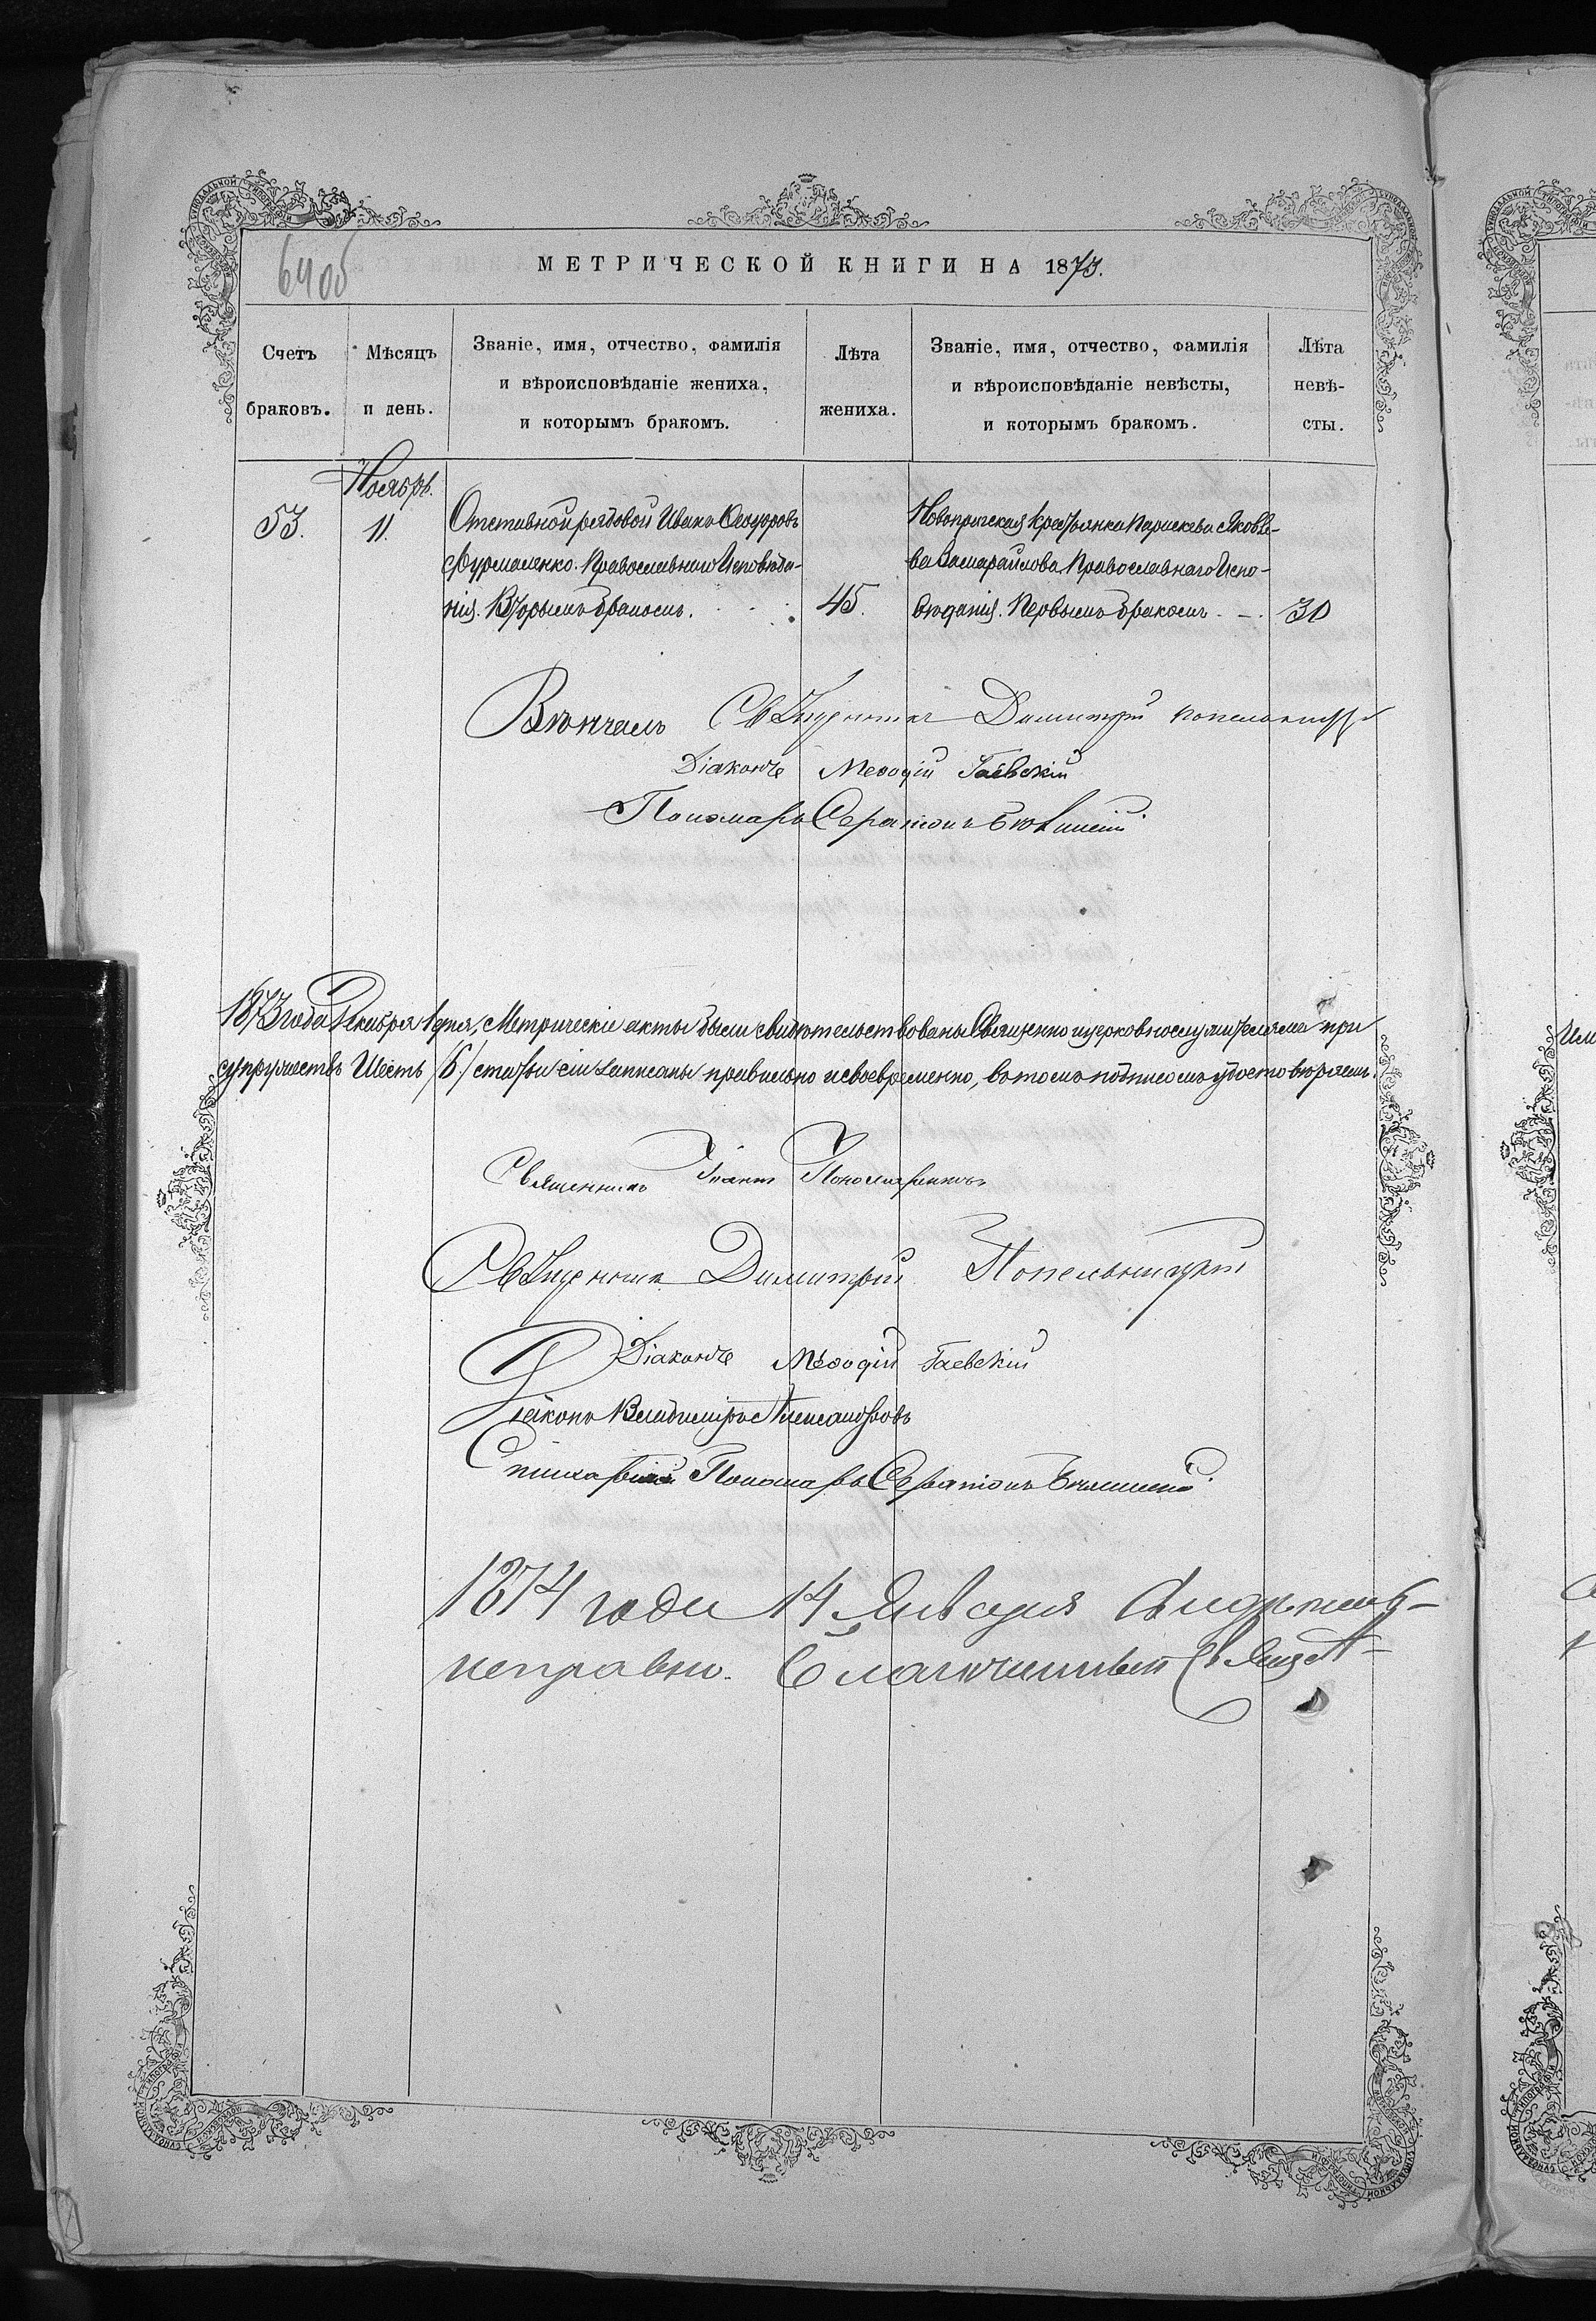 640б
МЕТРИЧЕСКОЙ КНИГИ НА 1873.
Счетъ браковъ.
Мѣсяцъ и день.
Званіе, имя, отчество, фамилія
и вѣроисповѣданіе жениха,
и которымъ бракомъ.
Лѣта жениха.
Званіе, имя, отчество, фамилія
и вѣроисповѣданіе невѣсты,
и которымъ бракомъ.
Лѣта невѣ-
сты.
Ноябрь.
53.
11.
Отставной рядовой Иванъ Ѳеодоровъ
Фурманенко. Православнаго Исповѣда-
нія. Вторымъ бракомъ.
45.
Крестьянка Параскева Яковле-
ва Православнаго Испо-
вѣданія. Первымъ бракомъ.
30
Вѣнчалъ Священникъ Димитрій
Діаконъ Меѳодій Гаевскій
Пономарь Серапіонъ
1873 года Декабря 1 дня, Метрическіе акты были свидѣтельствованы Священно и церковнослужителями при
супружествѣ Шесть /6/ статьи сіи записаны правильно и своевременно, въ томъ подписомъ удостовѣряемъ.
Священникъ Іоаннъ Пономаренковъ
Священникъ Димитрій Попельницкій
Діаконъ Меѳодій Гаевскій
Діаконъ Владиміръ Александровъ
Стихарный Пономарь Серапіонъ
1874 года 14 Января
исправно. Благочинный Свящ